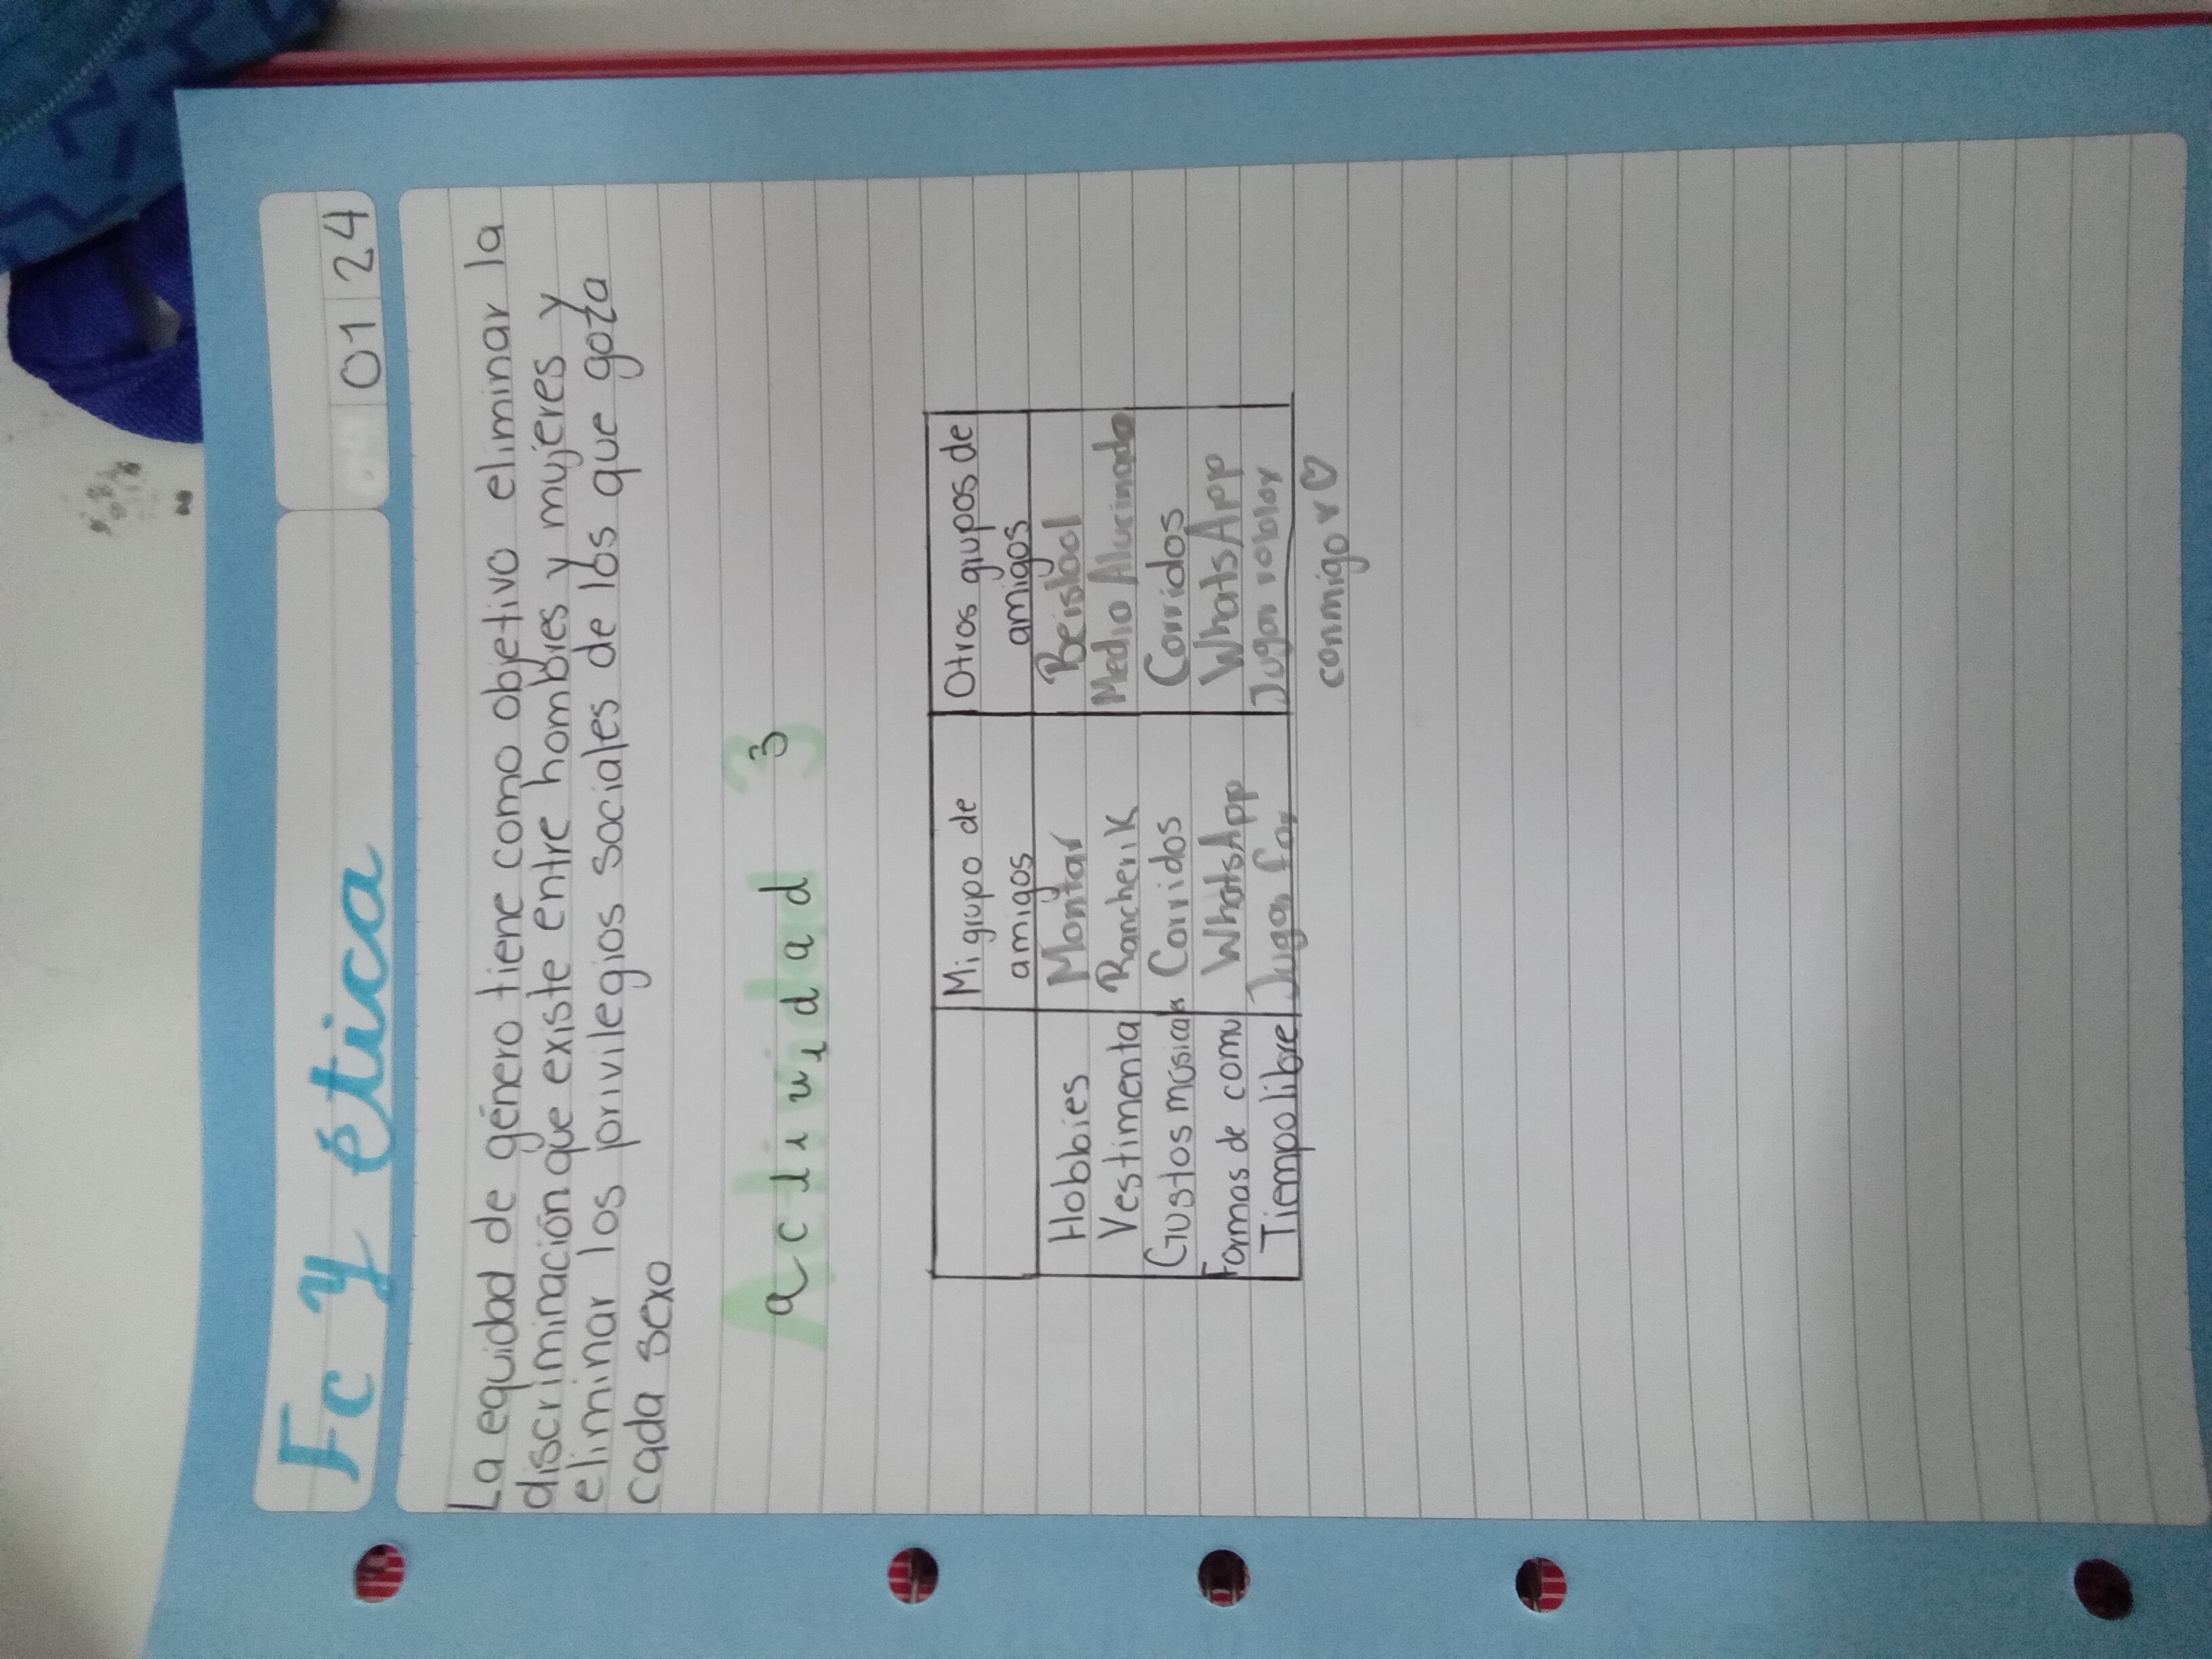 Fc y ética
01 24
La equidad de género tiene como objetivo eliminar la
discriminación que existe entre hombres y mujeres y
eliminar los privilegios sociales de los que goza
cada sexo
Actividad 3
Mi grupo de amigos | Otros grupos de amigos
Hobbies | Montar | Beisbol
Vestimenta | Rancherik | Medio Alucinado
Gustos músicales | Corridos | Corridos
Formas de comu | WhatsApp | WhatsApp
Tiempo libre | Jugar | Jugar roblox
conmigo